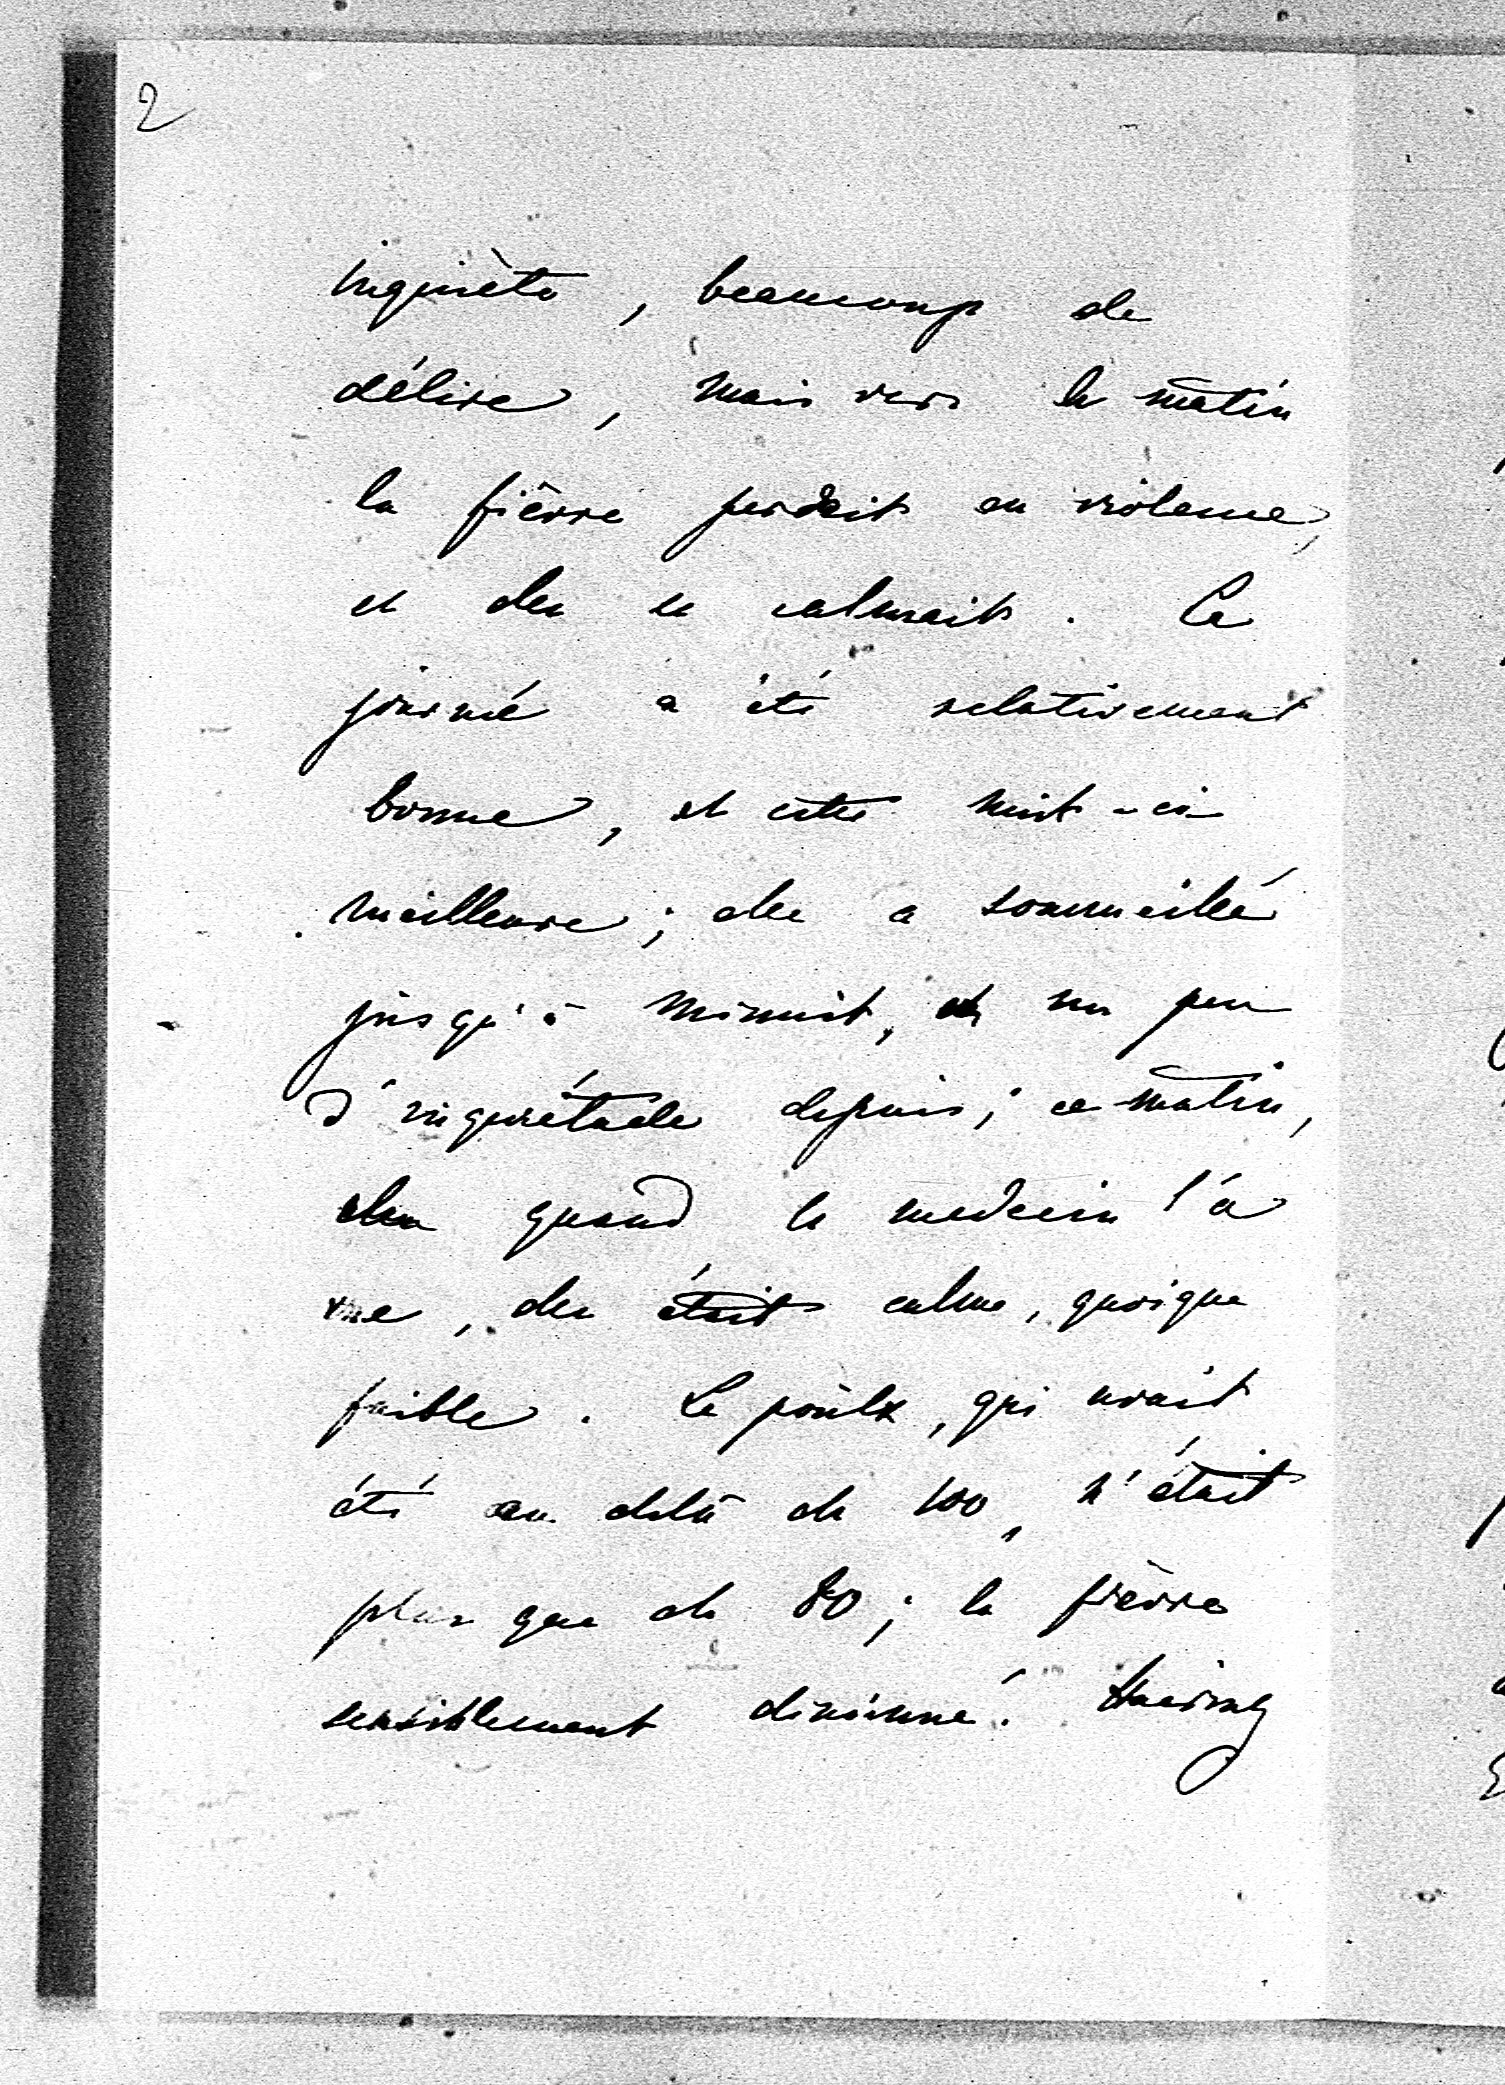 2
inquiète, beaucoup de
délire, mais vers le matin
la fièvre perdait en violence,
et elle se calmait. La
journé a été relativement
bonne, et cette nuit-ci
meilleure; elle a sommeillé
jusqu'à minuit, et un peu
d'inquiétude depuis; ce matin,
quand le medecin l'a
vue, elle était calme, quoique
faible. Le poulx, qui avait
été au delà de 100, n'était
plus que de 80; la fièvre
sensiblement diminué.